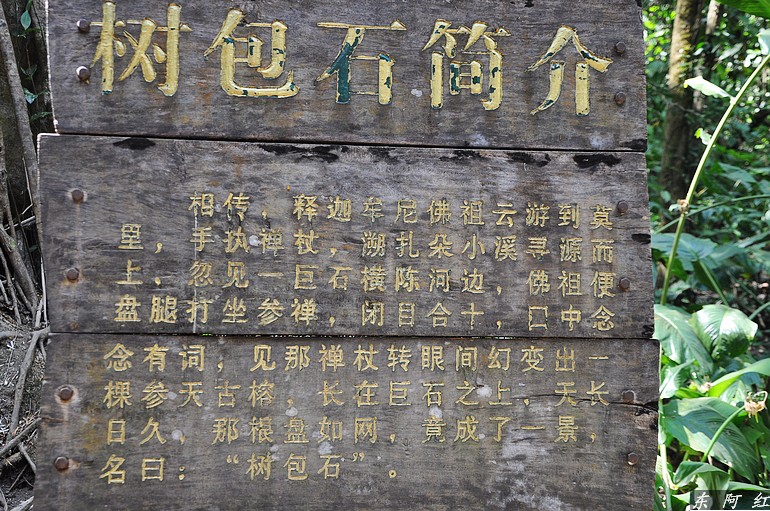 树包石简介
相传，释迦牟尼佛祖云游到莫
里，手执禅杖，溯扎朵小溪寻源而
上、忽见一巨石横陈河边，佛祖便
盘腿打坐参禅，闭目合十，口中念
念有词，见那禅杖转眼间幻变出一
棵参天古榕，长在巨石之上，天长
日久，那根盘如网，竟成了一景，
名曰：“树包石”。
东阿红